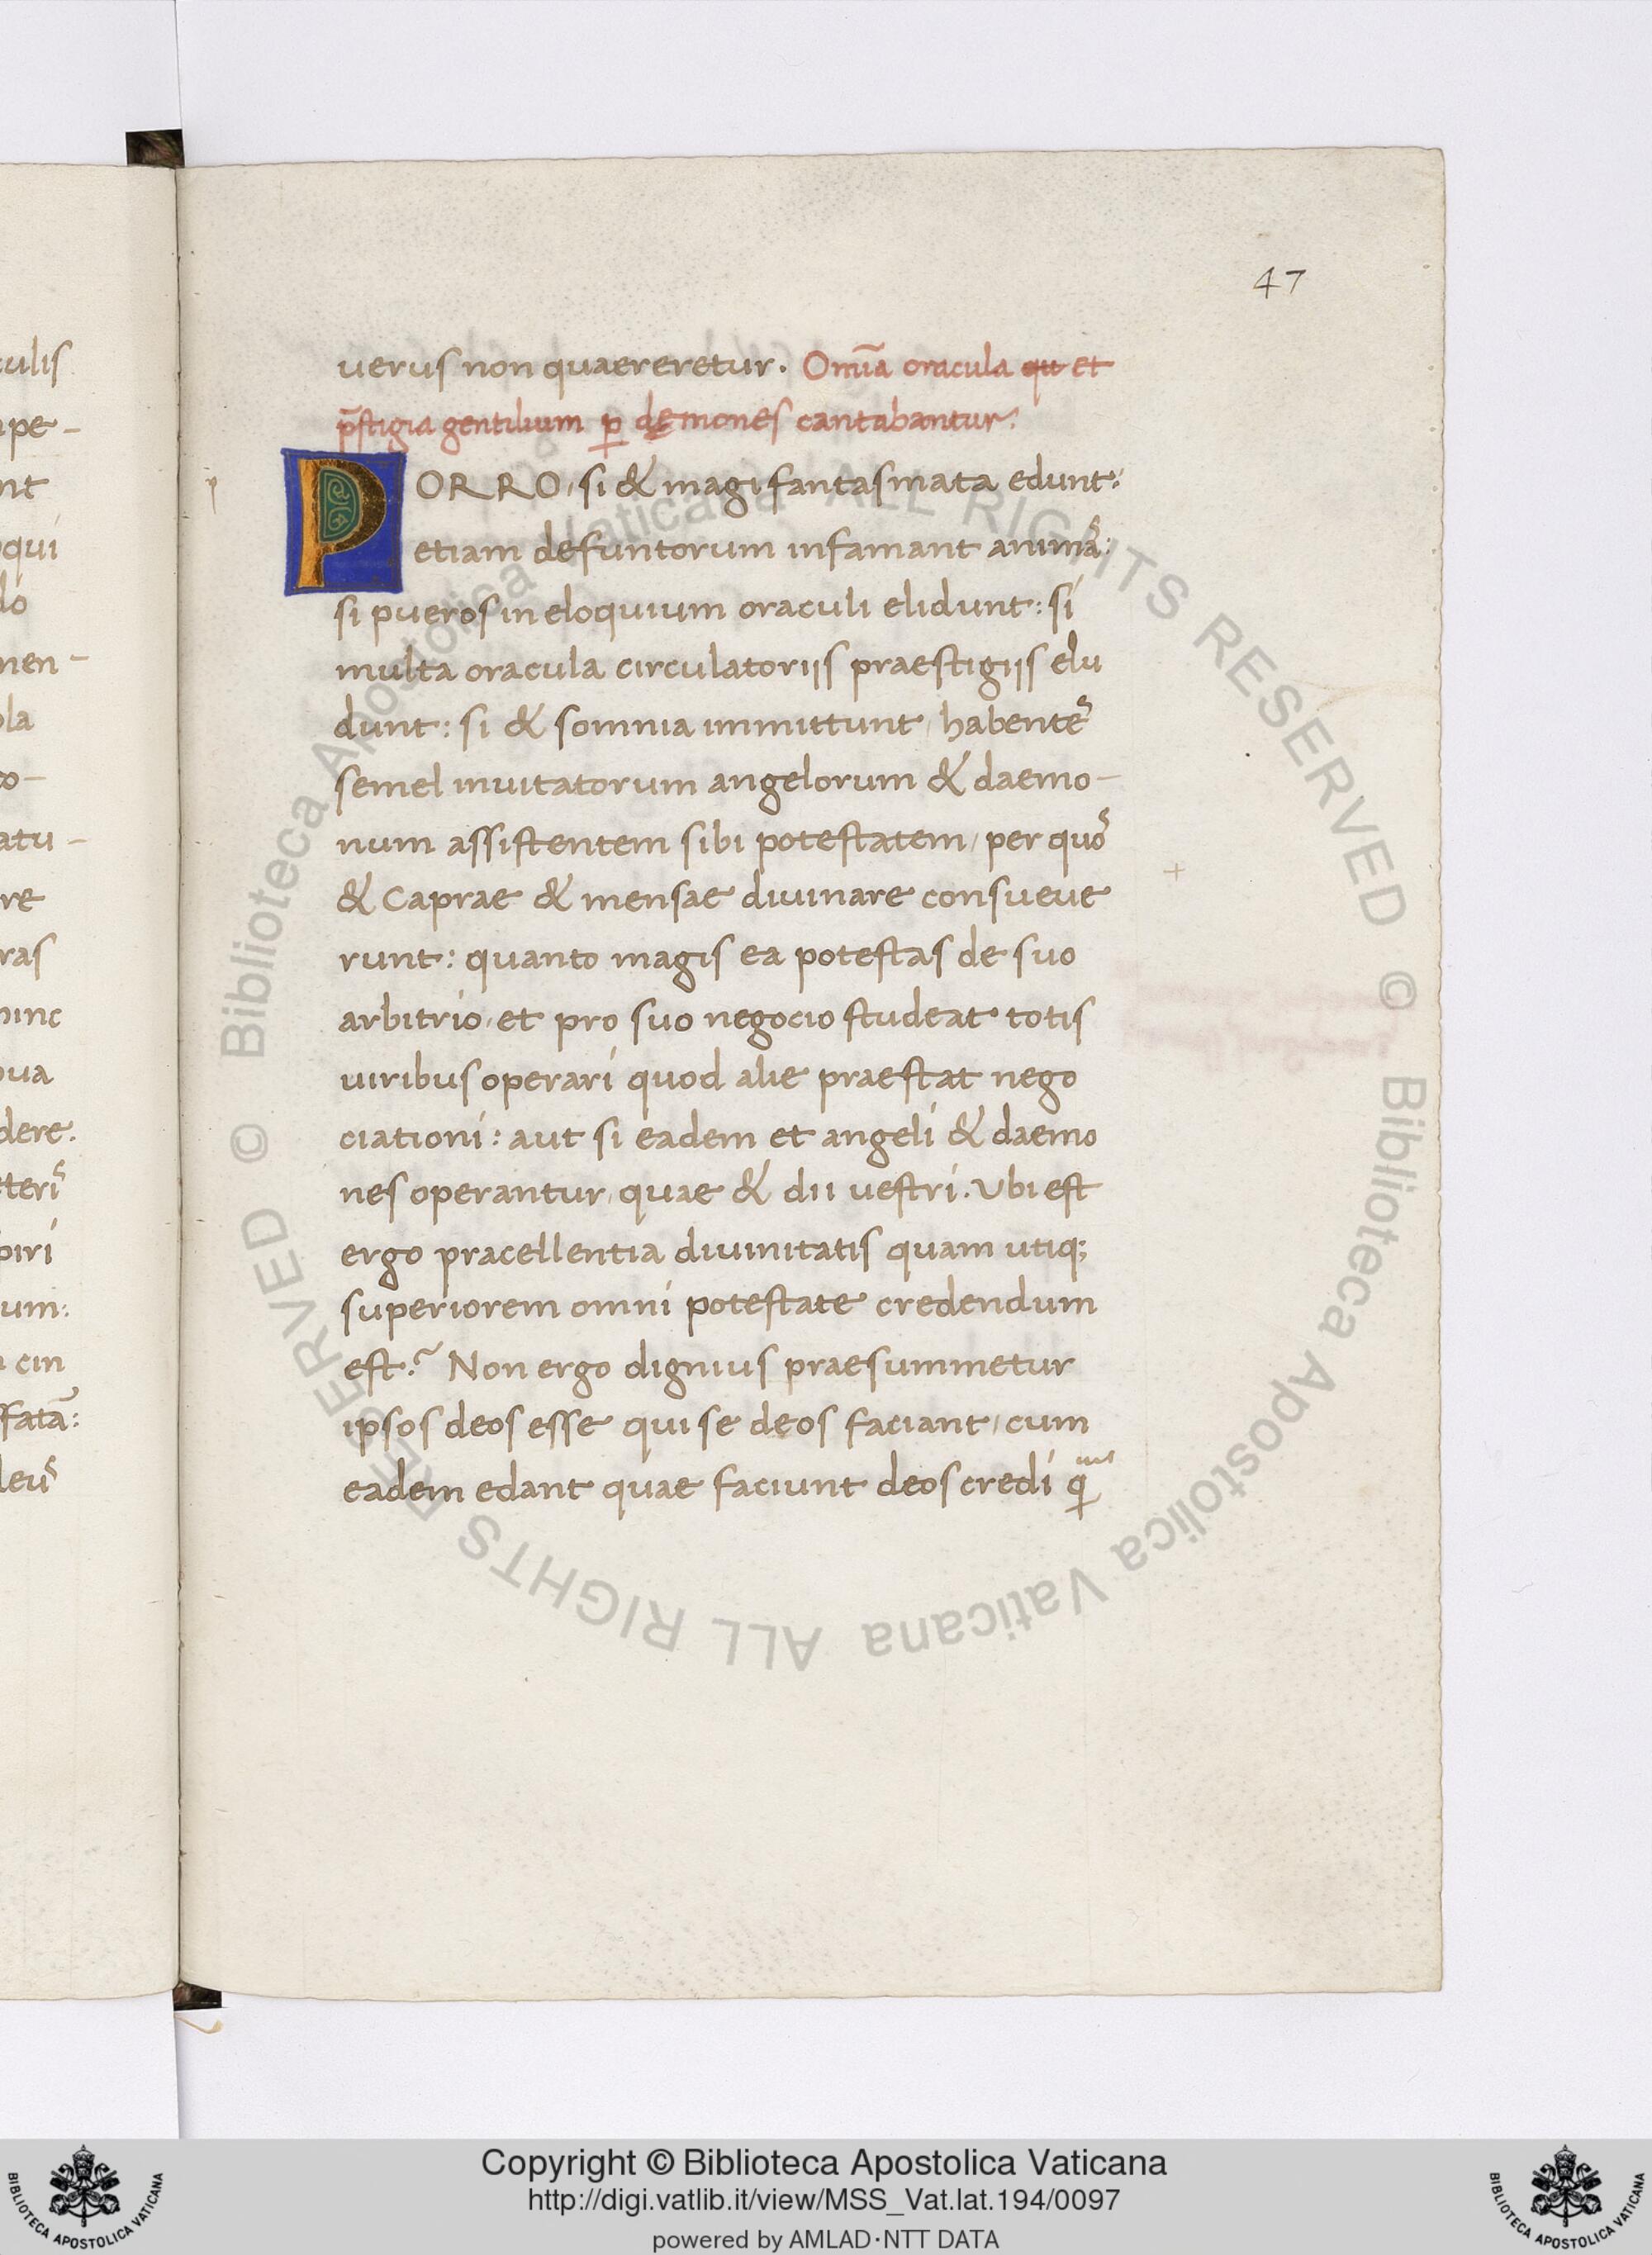 47
culis
mpe-
nt
oqui
do
men-
ola
co-
atu-
re
ras
hinc
oua
dere.
tteriˢ
piri
um:
cin
ssatā:
leuˢ
uerus non quaereretur. Om̄ia oracula qu et
p̄stigia gentilium ꝑ dęmones cantabantur.
PORRO, si & magi fantasmata edunt:
etiam defuntorum infamant animaˢ:
si pueros in eloquium oraculi elidunt: si
multa oracula circulatorijs praestigijs elu
dunt: si & somnia immittunt, habenteˢ
semel inuitatorum angelorum & daemo-
num assistentem sibi potestatem, per quoˢ
& Caprae & mensae diuinare consueue
runt: quanto magis ea potestas de suo
arbitrio, et pro suo negocio studeat totis
uiribus operari quod alie praestat nego
ciationi: aut si eadem et angeli & daemo
nes operantur, quae & dii uestri. Vbi est
ergo pracellentia diuinitatis quam utiq;
superiorem omni potestate credendum
est? Non ergo dignius praesummetur
ipsos deos esse qui se deos faciant, cum
eadem edant quae faciunt deos credi
© Biblioteca Apostolica Vaticana ALL RIGHTS RESERVED © Biblioteca Apostolica Vaticana ALL RIGHTS RESERVED
Copyright © Biblioteca Apostolica Vaticana
http://digi.vatlib.it/view/MSS_Vat.lat.194/0097
powered by AMLAD·NTT DATA
BIBLIOTECA APOSTOLICA VATICANA
BIBLIOTECA APOSTOLICA VATICANA